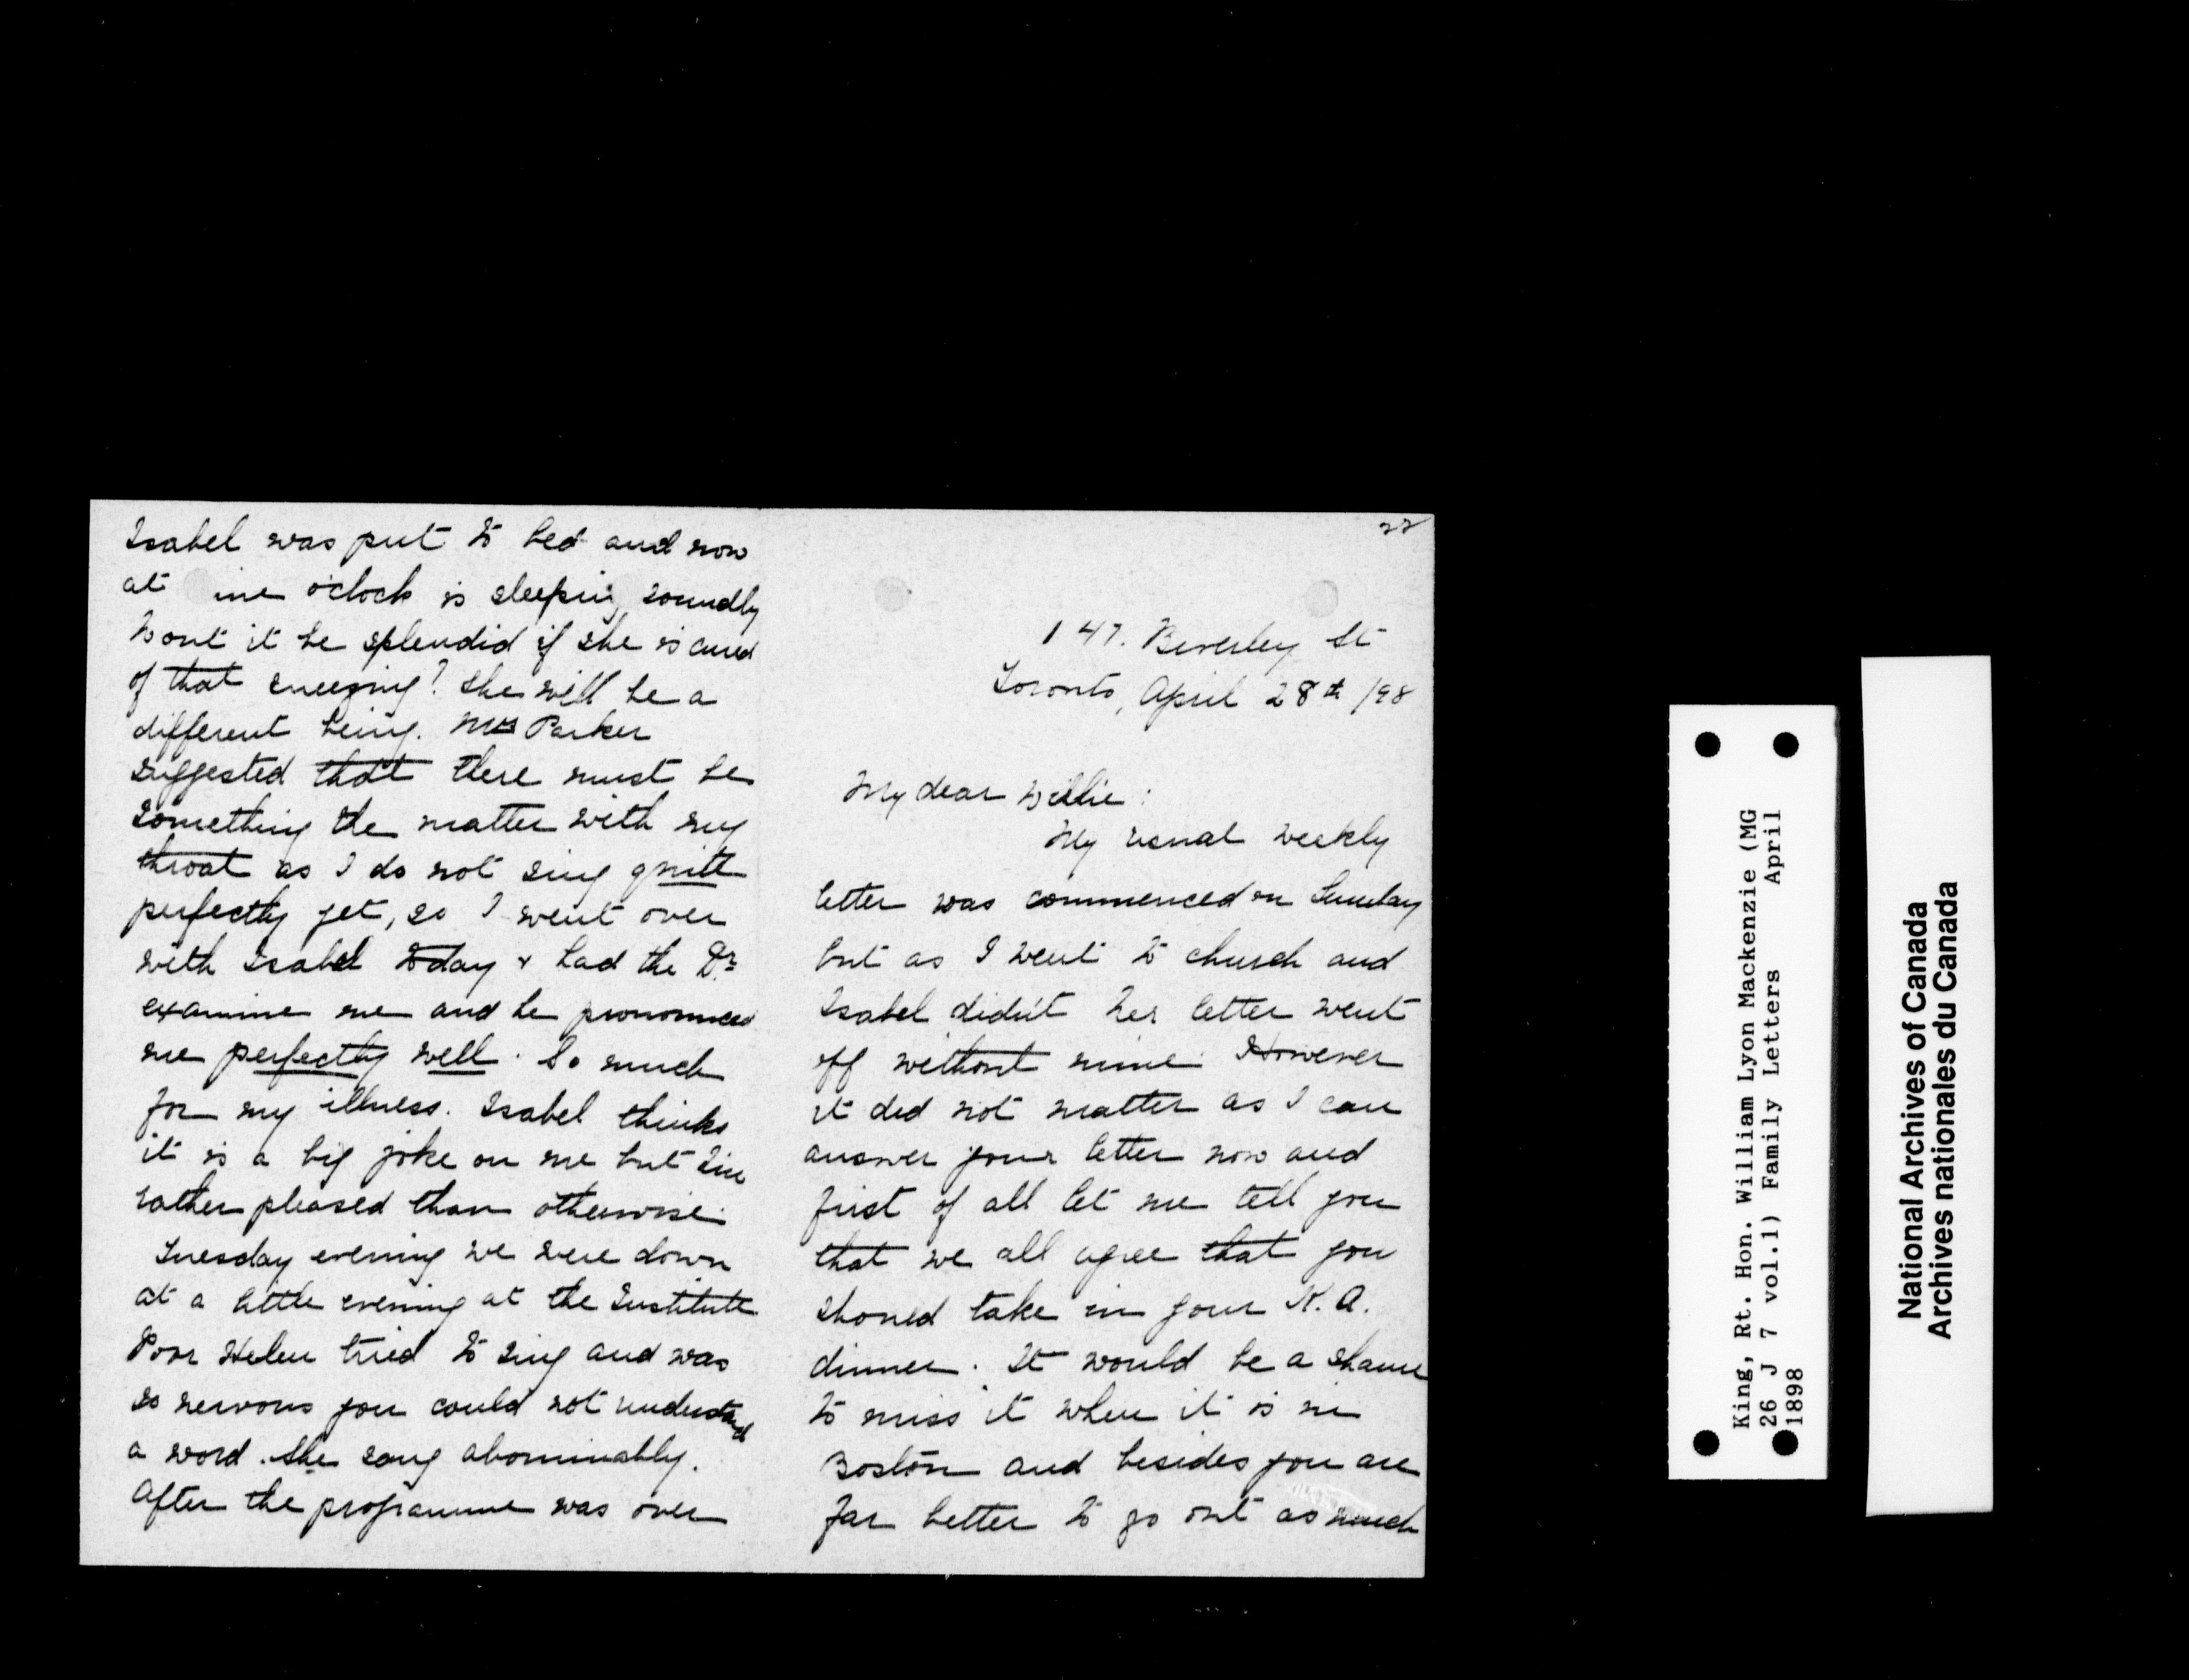 Isabel was put to bed and now
at ine o'clock is sleeping soundly
Wont it be splendid if she is cured
of that sneezing? She will be a
different being. Mrs Parker
suggested that there must be
something the matter with my
throat as I do not sing quite
perfectly yet, so I went over
with Isabel today & had the Dr.
examine me and he pronounced
me perfectly well. So much
for my illness. Isabel thinks
it is a big joke on me but I'm
rather pleased than otherwise.
Tuesday evening we were down
at a little evening at the Institute
Poor Helen tried to sing and was
so nervous you could not understand
a word. She sang abominably.
After the programme was over
147. Beverley St
Toronto, April 28th /98
My dear Willie:
My usual weekly
letter was commenced on Sunday
but as I went to church and
Isabel didn't her letter went
off without mine. However
it did not matter as I can
answer your letter now and
first of all let me tell you
that we all agree that you
should take in your K. A.
dinner. It would be a shame
to miss it when it is in
Boston and besides you are
far better to go out as much
King, Rt. Hon. William Lyon Mackenzie (MG
26 J 7 vol.1) Family Letters April
1898
National Archives of Canada
Archives nationales du Canada